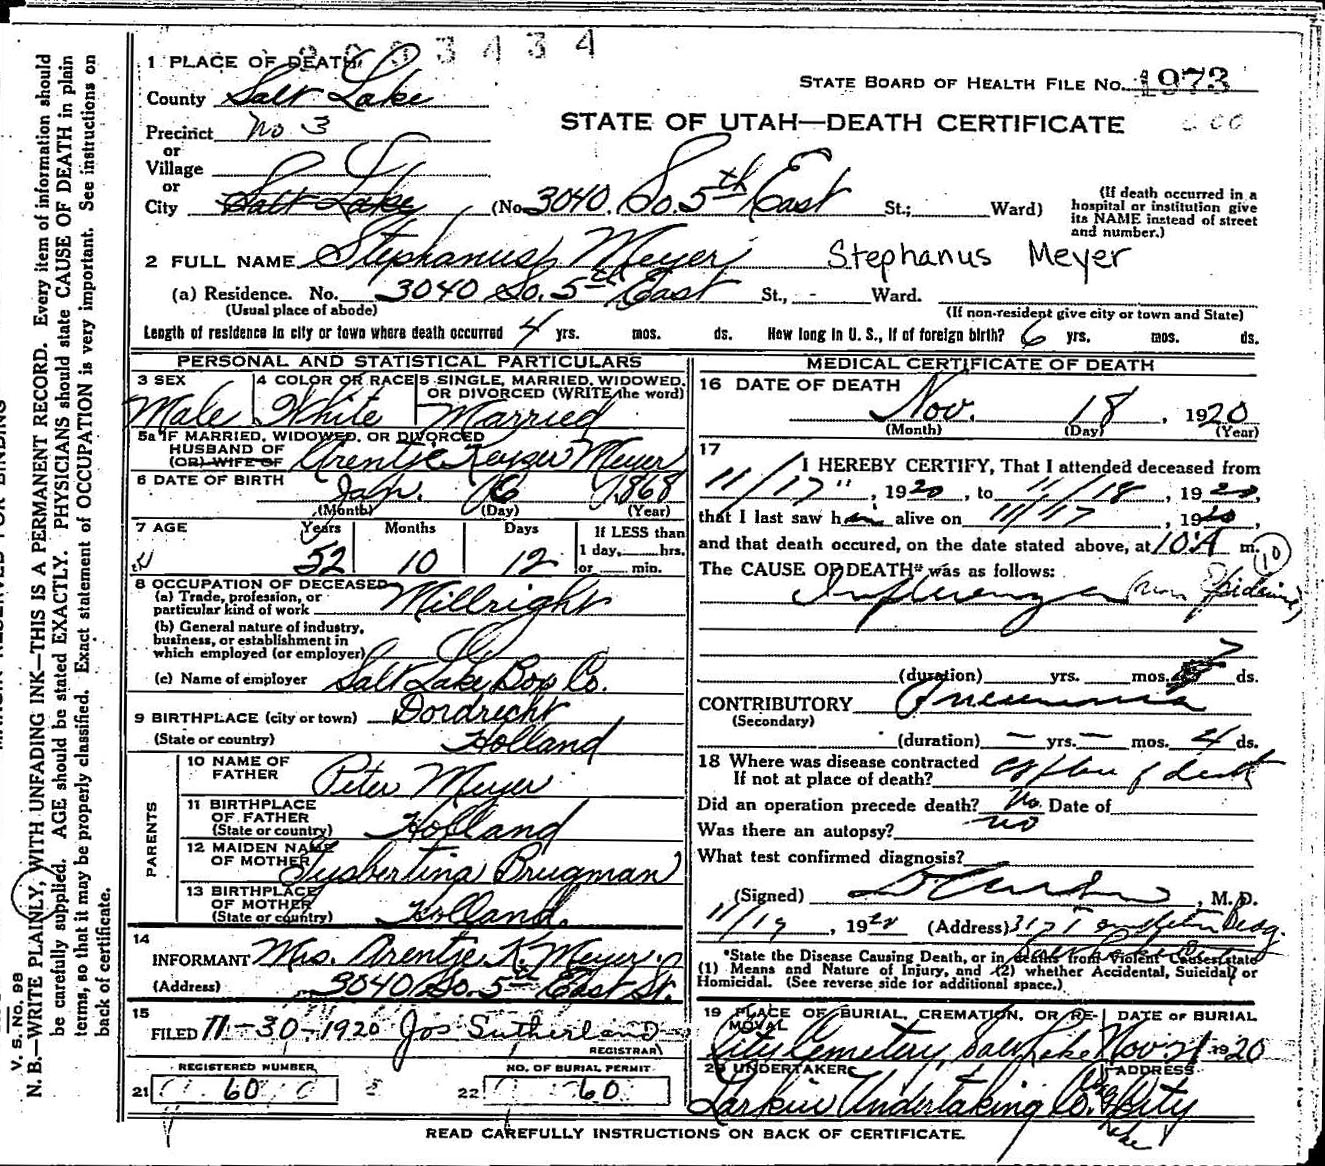 3434
1 PLACE OF DEATH
STATE BOARD OF HEALTH FILE No. 1973
County Salt Lake
Precinct No 3
STATE OF UTAH—DEATH CERTIFICATE
or
Village
or
City Salt Lake (No. 3040 So. 5th East St.; Ward)
(If death occurred in a hospital or institution give its NAME instead of street and number.)
2 FULL NAME Stephanus Meyer Stephanus Meyer
(a) Residence. No. 3040 So. 5th East St., - Ward.
(Usual place of abode) (If non-resident give city or town and State)
Length of residence in city or town where death occurred 4 yrs. mos. ds. How long in U. S., if of foreign birth? 6 yrs. mos. ds.
PERSONAL AND STATISTICAL PARTICULARS
3 SEX 4 COLOR OR RACE 5 SINGLE, MARRIED, WIDOWED, OR DIVORCED (WRITE the word)
Male White Married
5a IF MARRIED, WIDOWED, OR DIVORCED
HUSBAND OF
(OR) WIFE OF Arentje Keyzer Meyer
6 DATE OF BIRTH Jan. 6 1868
(Month) (Day) (Year)
7 AGE Years Months Days If LESS than
1 day, hrs.
52 10 12 or min.
8 OCCUPATION OF DECEASED
(a) Trade, profession, or
particular kind of work Millright
(b) General nature of industry,
business, or establishment in
which employed (or employer)
(c) Name of employer Salt Lake Box Co.
9 BIRTHPLACE (city or town) Dordrecht
(State or country) Holland
PARENTS
10 NAME OF
FATHER Peter Meyer
11 BIRTHPLACE
OF FATHER
(State or country) Holland
12 MAIDEN NAME
OF MOTHER Brugman
13 BIRTHPLACE
OF MOTHER
(State or country) Holland
14
INFORMANT Mrs. Arentje K. Meyer
(Address) 3040 So. 5th East St.
15
FILED 11-30-1920 Jos Sutherland
REGISTRAR
REGISTERED NUMBER NO. OF BURIAL PERMIT
21 60 22 60
MEDICAL CERTIFICATE OF DEATH
16 DATE OF DEATH
Nov. 18, 1920
(Month) (Day) (Year)
17
I HEREBY CERTIFY, That I attended deceased from
11/17, 1920, to 11/18, 1920,
that I last saw him alive on 11/17, 1920,
and that death occured, on the date stated above, at 10 A m.
10
The CAUSE OF DEATH* was as follows:
Influenza (non Epidemic)
7
(duration) yrs. mos. ds.
CONTRIBUTORY Pneumonia
(Secondary)
(duration) — yrs. — mos. 4 ds.
18 Where was disease contracted
If not at place of death? at place of death
Did an operation precede death? No. Date of
Was there an autopsy? no
What test confirmed diagnosis?
(Signed) , M. D.
11/19, 1920 (Address)
*State the Disease Causing Death, or in deaths from Violent Causes, state
(1) Means and Nature of Injury, and (2) whether Accidental, Suicidal, or
Homicidal. (See reverse side for additional space.)
19 PLACE OF BURIAL, CREMATION, OR RE- DATE OF BURIAL
MOVAL
City Cemetery, Salt Lake Nov 21 1920
20 UNDERTAKER ADDRESS
Larkin Undertaking Co. City
READ CAREFULLY INSTRUCTIONS ON BACK OF CERTIFICATE.
MARGIN RESERVED FOR BINDING
V. S. No. 98
N. B.—WRITE PLAINLY, WITH UNFADING INK—THIS IS A PERMANENT RECORD. Every item of information should
be carefully supplied. AGE should be stated EXACTLY. PHYSICIANS should state CAUSE OF DEATH in plain
terms, so that it may be properly classified. Exact statement of OCCUPATION is very important. See instructions on
back of certificate.